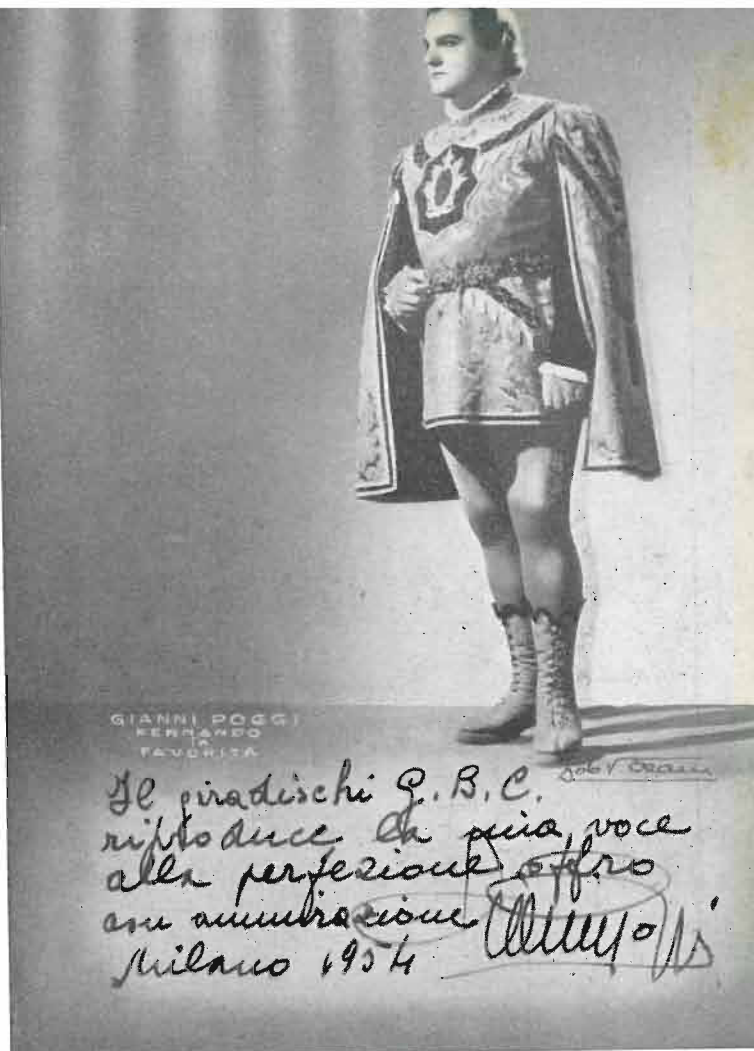 GIANNI POGGI
FERNANDO
IN
FAVORITA
Il giradischi G.B.C.
riproduce la mia voce
alla perfezione offro
con ammirazione
Milano 1954